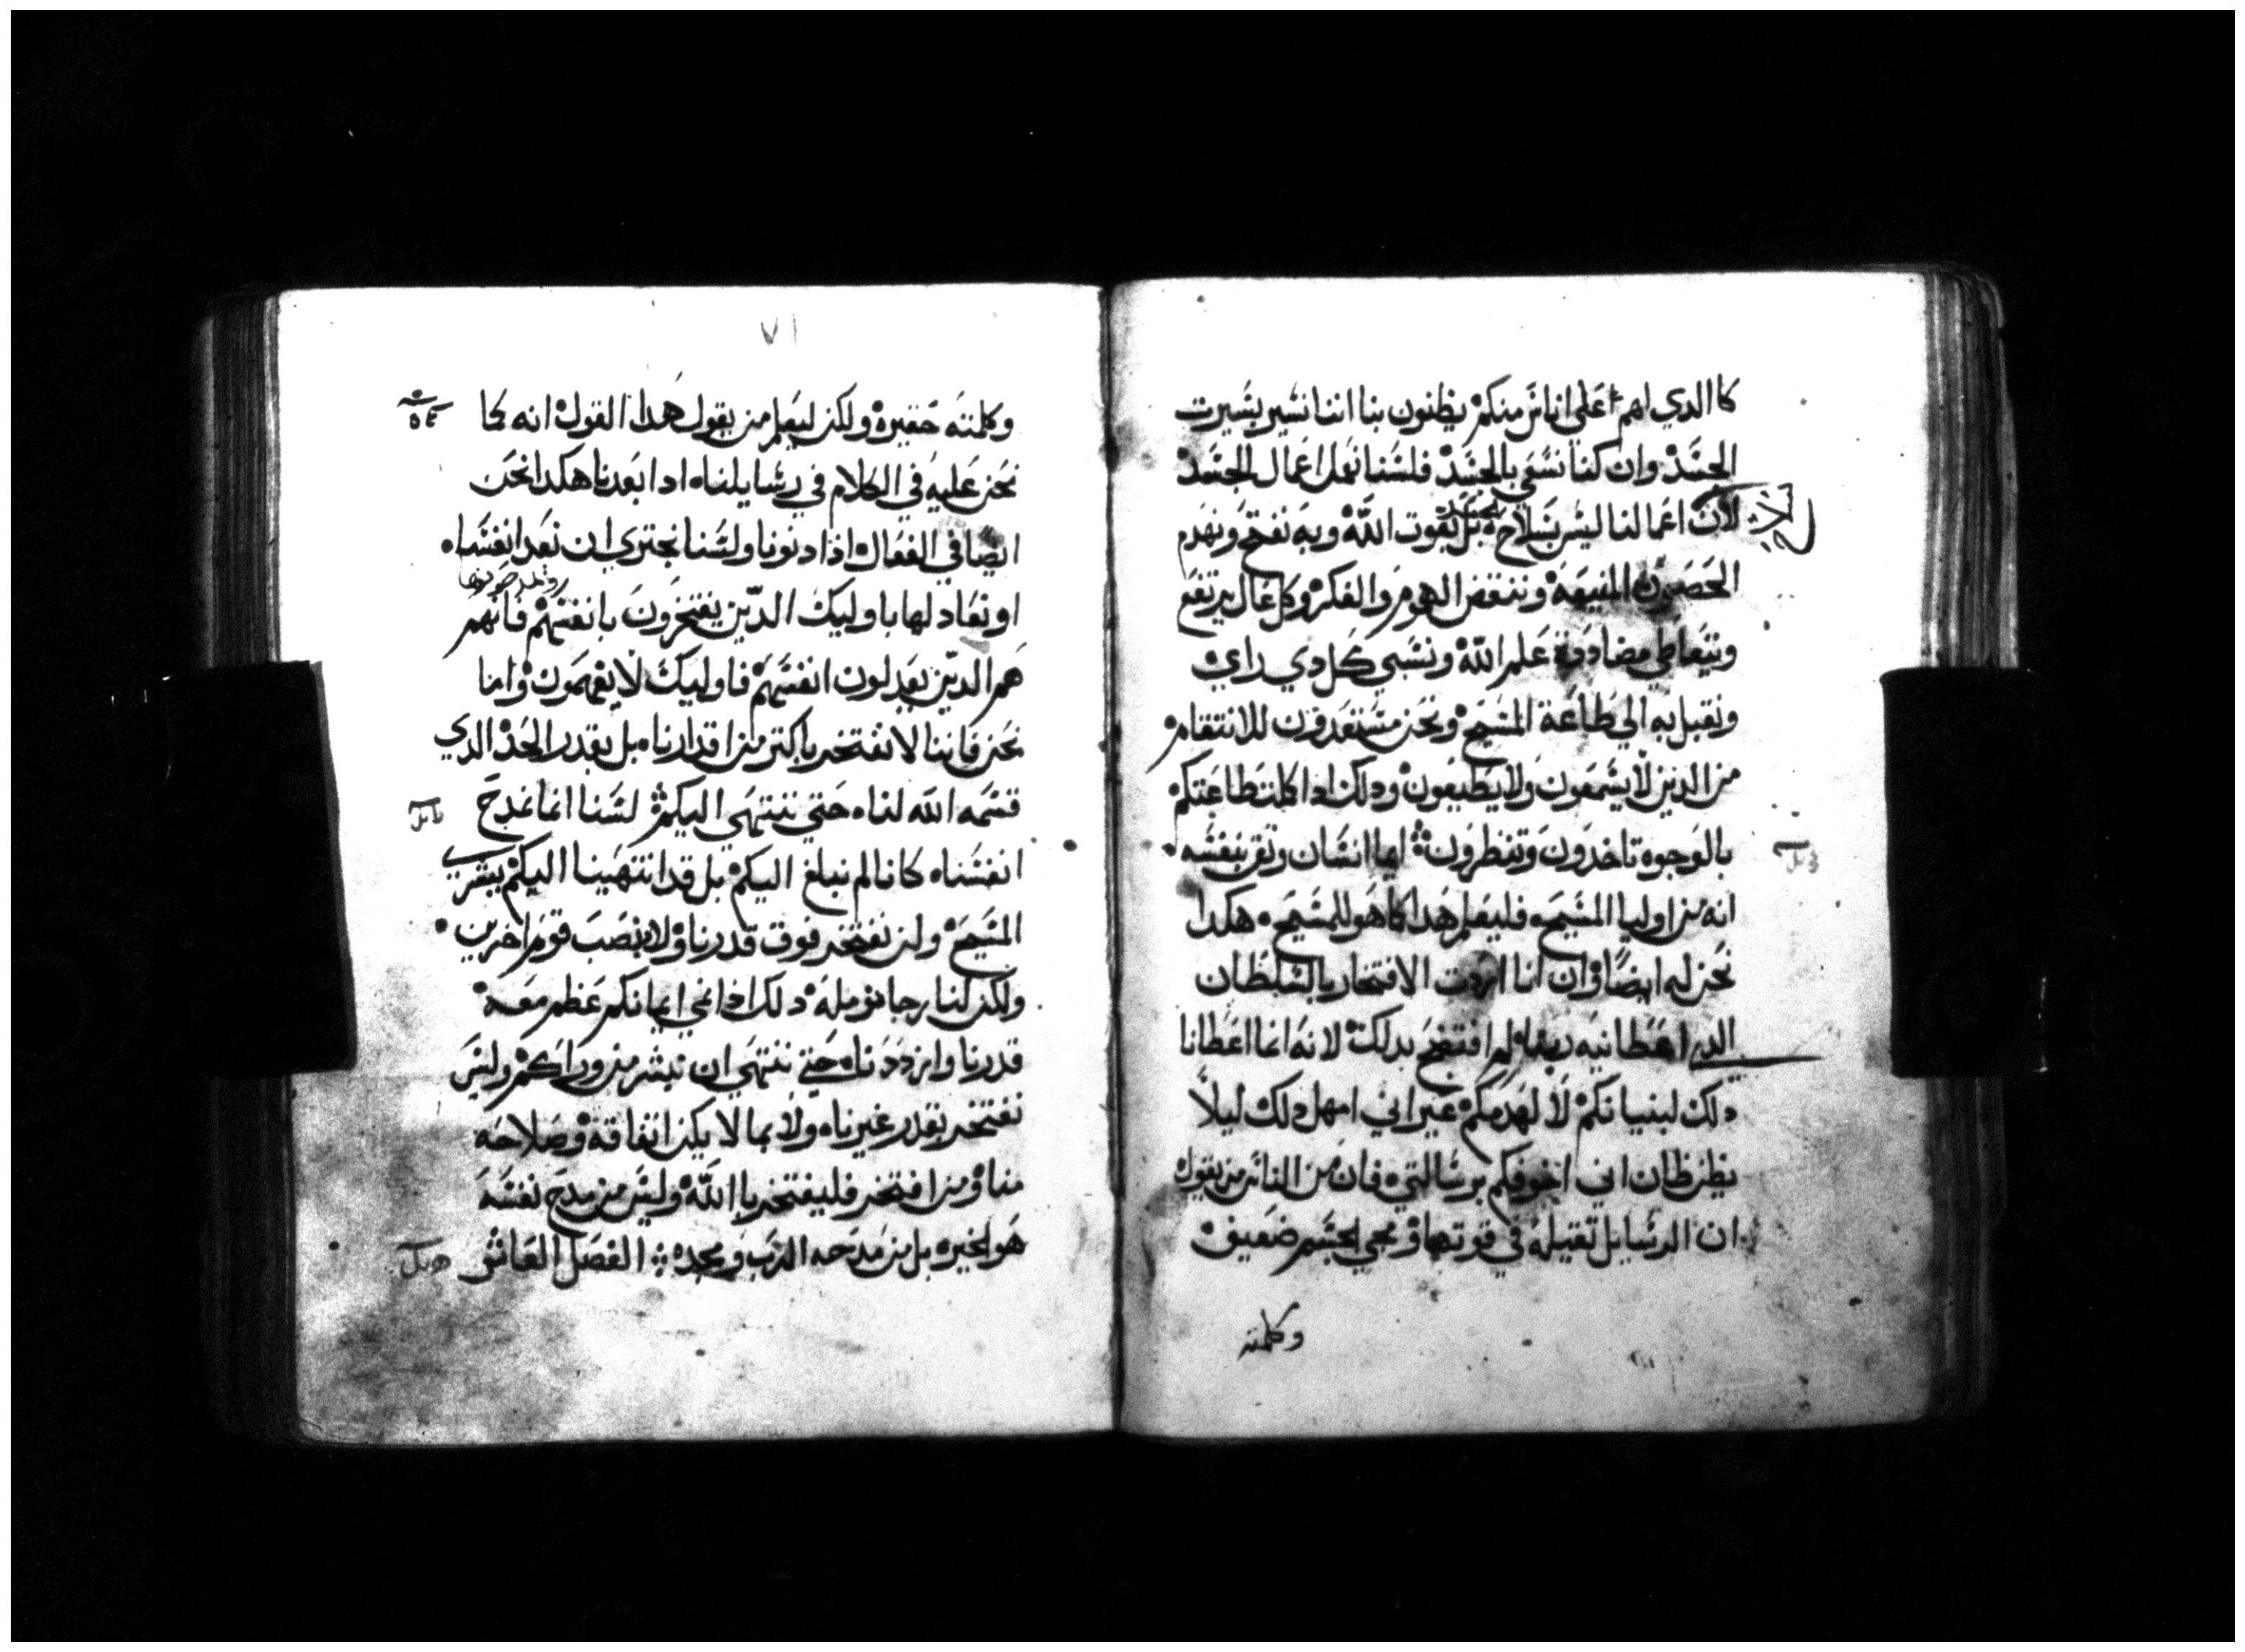 كاالدي اهم اعلى اناس منكم يظنون بنا اننا نسير بسيرت
الجسد وان كنا نسعي بالجسد فلسنا نعمل اعمال الجسد
لان اعمالنا ليس بسلاح بل بقوت الله وبه نفتح ونهدم
الحصون المنيعه وننقض الهموم والفكر وكل عال يرتفع
ويتعاطي مضاددة علم الله ونسبي كل دي راي
ونقبل به الي طاعة المسيح ونحن مستعدون للانتقام
من الدين لا يسمعون ولا يطيعون ودلك ادا كملت طاعتكم
بالوجوه تاخدون وتنظرون ايما انسان وثق بنفسه
انه من اوليا المسيح فليعلم هدا كما هو للمسيح هكدا
نحن له ايضا وان انا اردت الافتخار بالسلطان
الدي اعطانيه ربنا لم افتضح بدلك لانه انما اعطانا
دلك لبنيانكم لا لهدمكم غير اني امهل دلك ليلا
يظن ظان اني اخوفكم برسالتي فان من الناس من يقول
ان الرسايل تقيله في قوتها ومجي الجسم ضعيف
وكلمته
٧١
وكلمته حقيره ولكن ليعلم من يقول هدا القول انه كما
نحن عليه في الكلام في رسايلنا ادا بعدنا هكدا نحن
ايضا في الفعال اذا دنونا ولسنا نجتري ان نعد انفسنا
او نعادلها باوليك الدين يفتخرون بانفسهم فانهم
هم الدين يعدلون انفسهم فاوليك لا يفهمون واما
نحن فاننا لا نفتخر باكتر من اقدارنا بل بقدر الحد الدي
قسمه الله لنا حتي ننتهي اليكم لسنا انما نمدح
انفسنا كانا لم نبلغ اليكم بل قد انتهينا اليكم ببشري
المسيح ولن نفتخر فوق قدرنا ولا بنصب قوم اخرين
ولكن لنا رجا نومله دلك اذا نمي ايمانكم عظم معه
قدرنا وازددنا حتي ننتهي ان نبشر من وراكم وليس
نفتخر بقدر غيرنا ولا بما لا يكن اتفاقه وصلاحه
منا ومن افتخر فليفتخر باالله وليس من مدح نفسه
هو الخيره بل من مدحه الرب ومجده الفصل العاشر